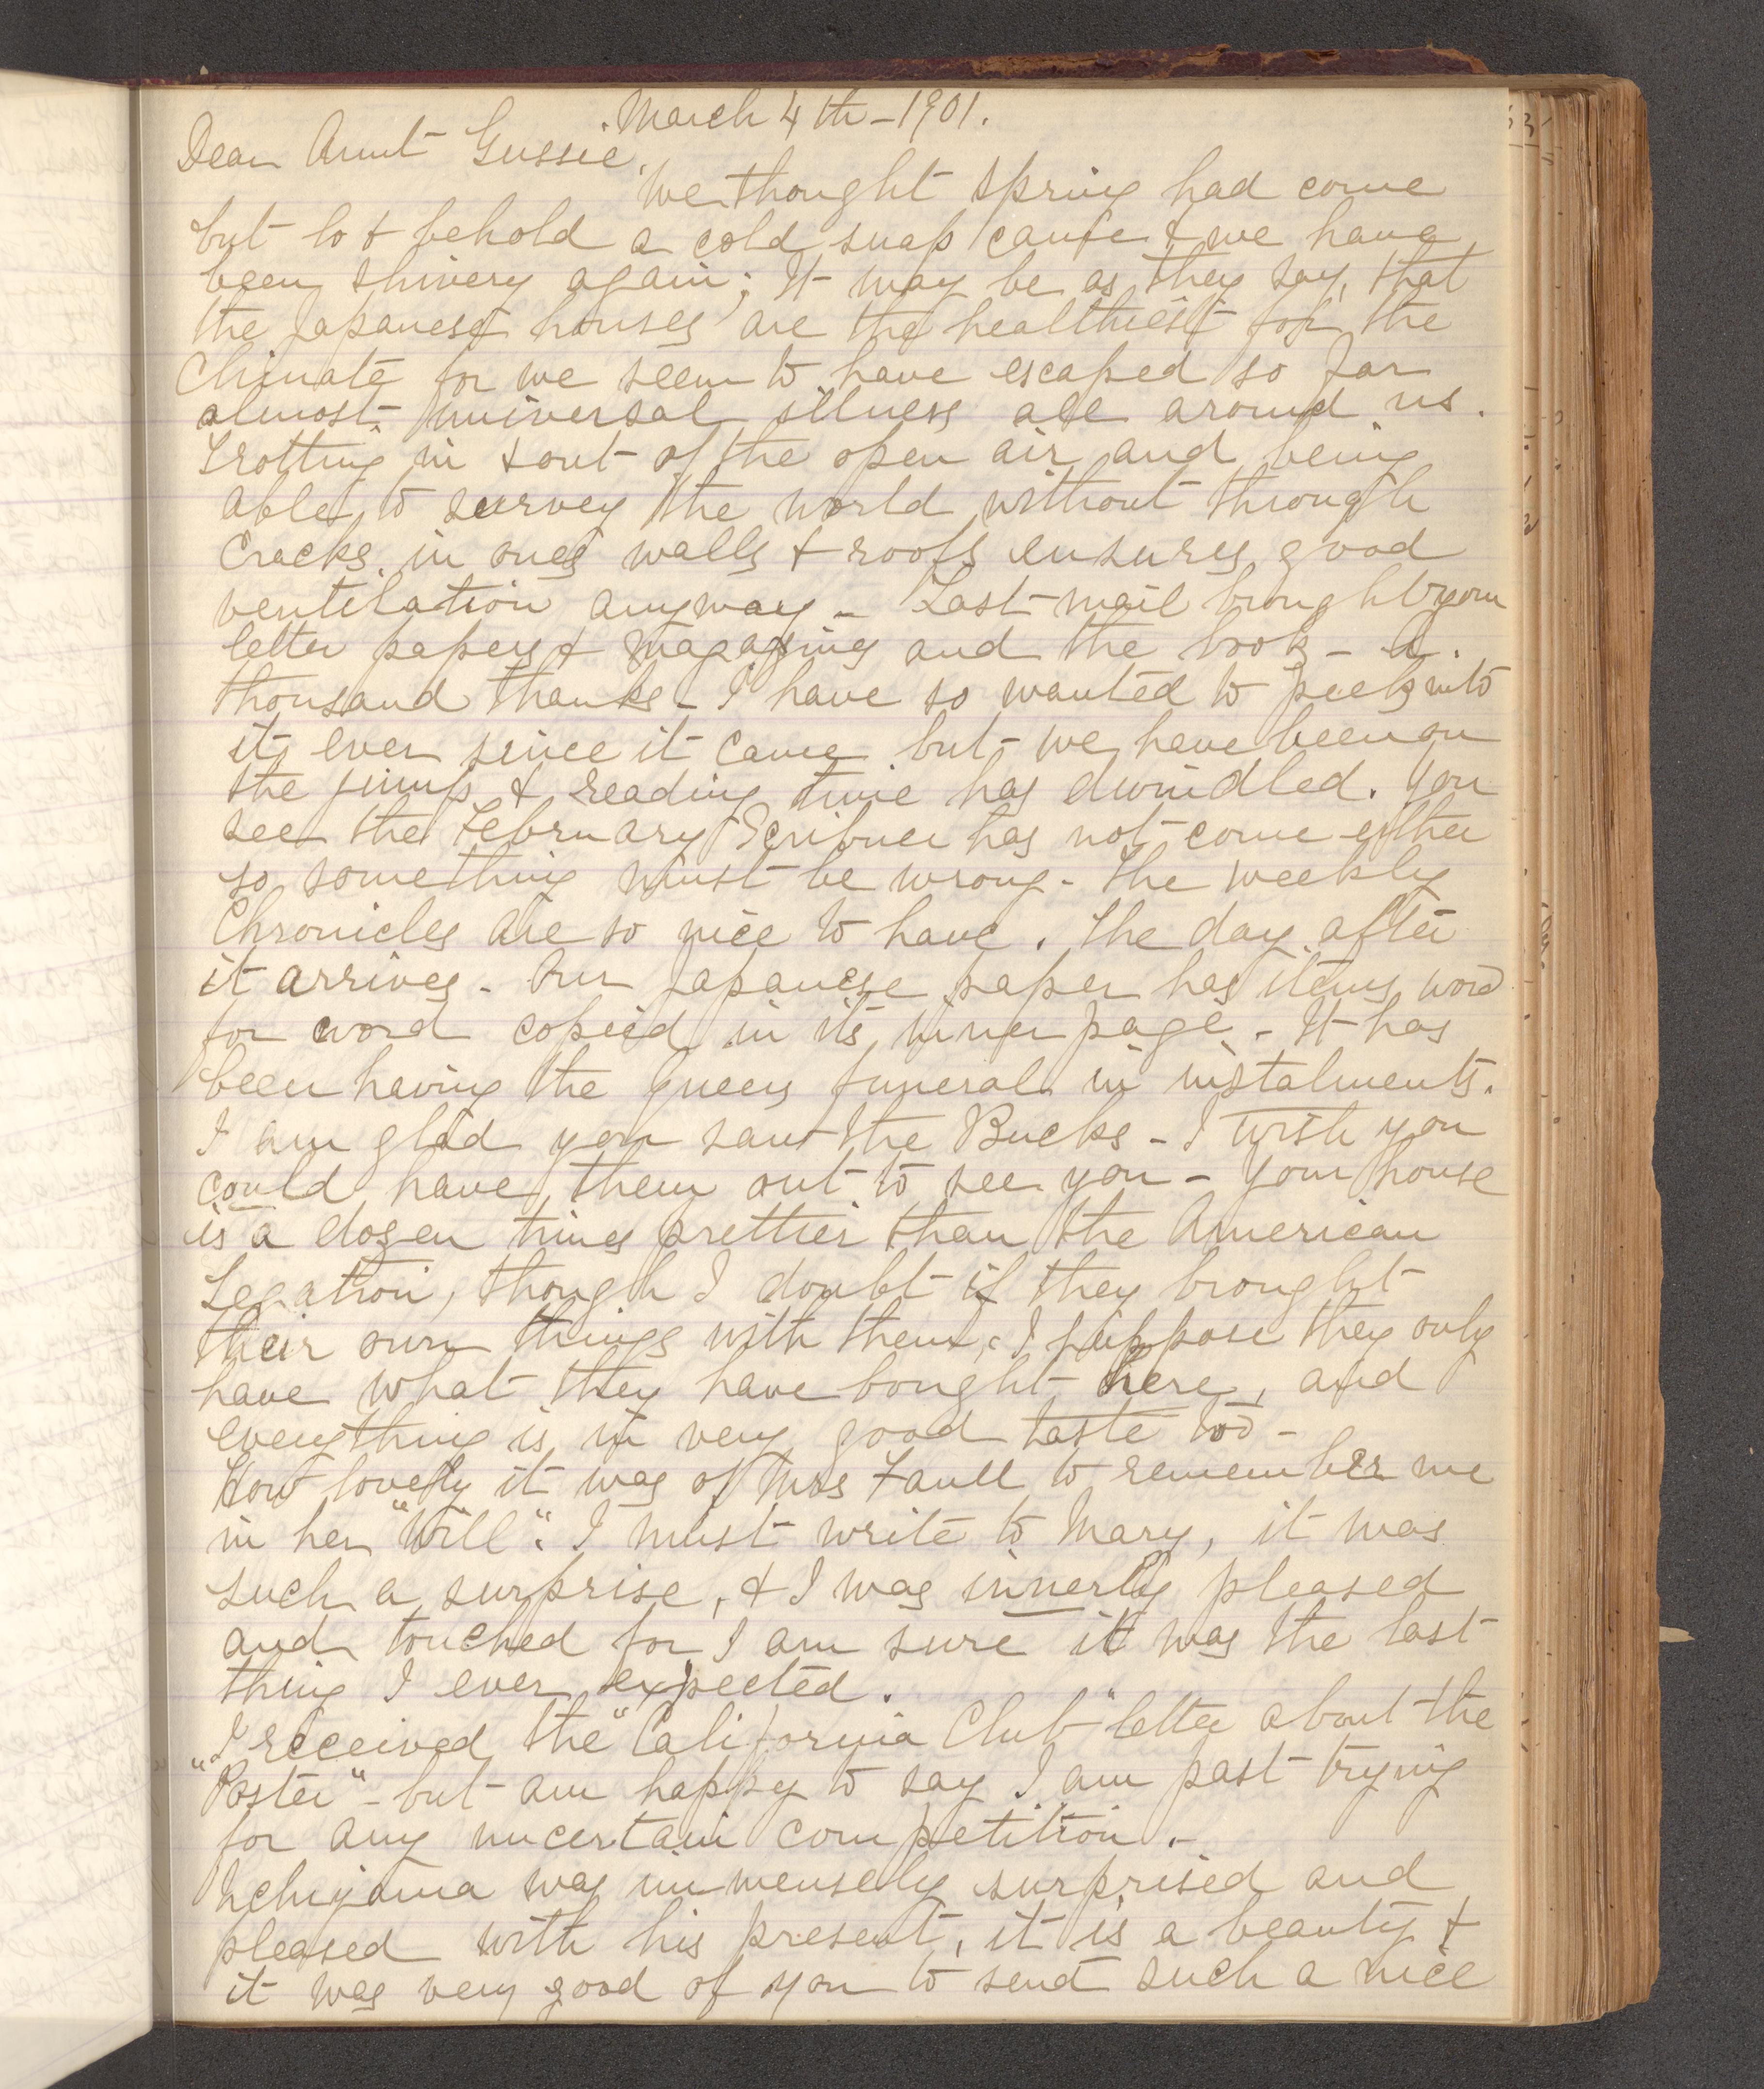 March 4th - 1901.
Dear Aunt Gussie,
We thought Spring had come
but lo & behold a cold snap came & we have
been shivery again; It may be as they say, that
the Japanese houses are the healthiest for the
Climate for we seem to have escaped so far
almost universal illness all around us.
Trotting in & out of the open air and being
able to survey the world without through
Cracks in ones walls & roofs ensures good
ventilation anyway - Last mail brought your
letter papers & magazines and the book - A
thousand thanks - I have so wanted to peek into
it ever since it came but we have been on
the jump & reading time has dwindled. You
see the February Scribner has not come either
so something must be wrong - The weekly
Chronicles are so nice to have. The day after
it arrives - Our Japanese paper has items word
for word copied in its inner page - It has
been having the Queens funeral in instalments.
I am glad you saw the Bucks - I wish you
could have them out to see you - Your house
is a dozen times prettier than the American
Legation, though I doubt if they brought
their own things with them, I suppose they only
have what they have bought here, and
everything is in very good taste too -
How lovely it was of Mrs Faull to remember me
in her "Will". I must write to Mary, it was
such a surprise, & I was innerly pleased
and touched for I am sure it was the last
thing I ever expected.
I received the "California Club" letter about the
"Poster" - but am happy to say I am past trying
for any uncertain competition. -
Uchiyama was immensely surprised and
pleased with his present, it is a beauty &
it was very good of you to send such a nice